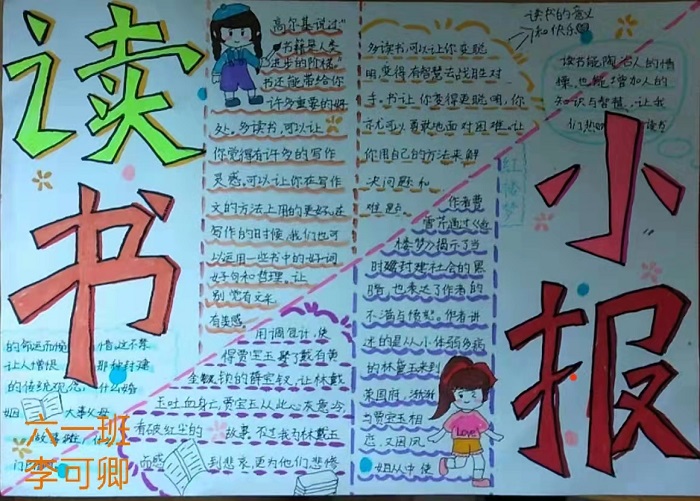 读书
小报
高尔基说过"
书籍是人类
进步的阶梯"
书还能带给你
许多重要的好
处,多读书,可以让
你觉得有许多的写作
灵感,可以让你在写作
文的方法上用的更好,在
写作的时候,我们也可
以运用一些书中的好词
好句和哲理。让
别觉有文采,
有美感。
多读书可以让你变聪
变得有智慧去战胜对
手。书让你变得更聪明,你
就可以勇敢地面对困难。让
你用自己的方法来解
决问题和
难题。
读书的意义
和快乐
读书能陶冶人的情
操,也能增加人的
知识与智慧,让我
们 读书
红楼梦
作者曹
雪芹通过《红
楼梦》揭示了当
时 封建社会的黑
暗,也表达了作者的
不满与愤怒。作者讲
述的是从小体弱多病
的林黛玉来到
荣国府,渐渐
与贾宝玉相
恋,又因凤
姐从中使
用调包计,使
得贾宝玉娶了戴有黄
金 锁的薛宝钗,让林黛
玉吐血身亡,贾宝玉从此心灰意冷,
看破红尘的 故事。不过我为林黛玉
而感 到悲哀,更为他们悲惨
的命运而惋惜,这不禁
让人憎恨 那种封建
的传统观念,什么婚
姻 大事父母
Love
六一班
李可卿